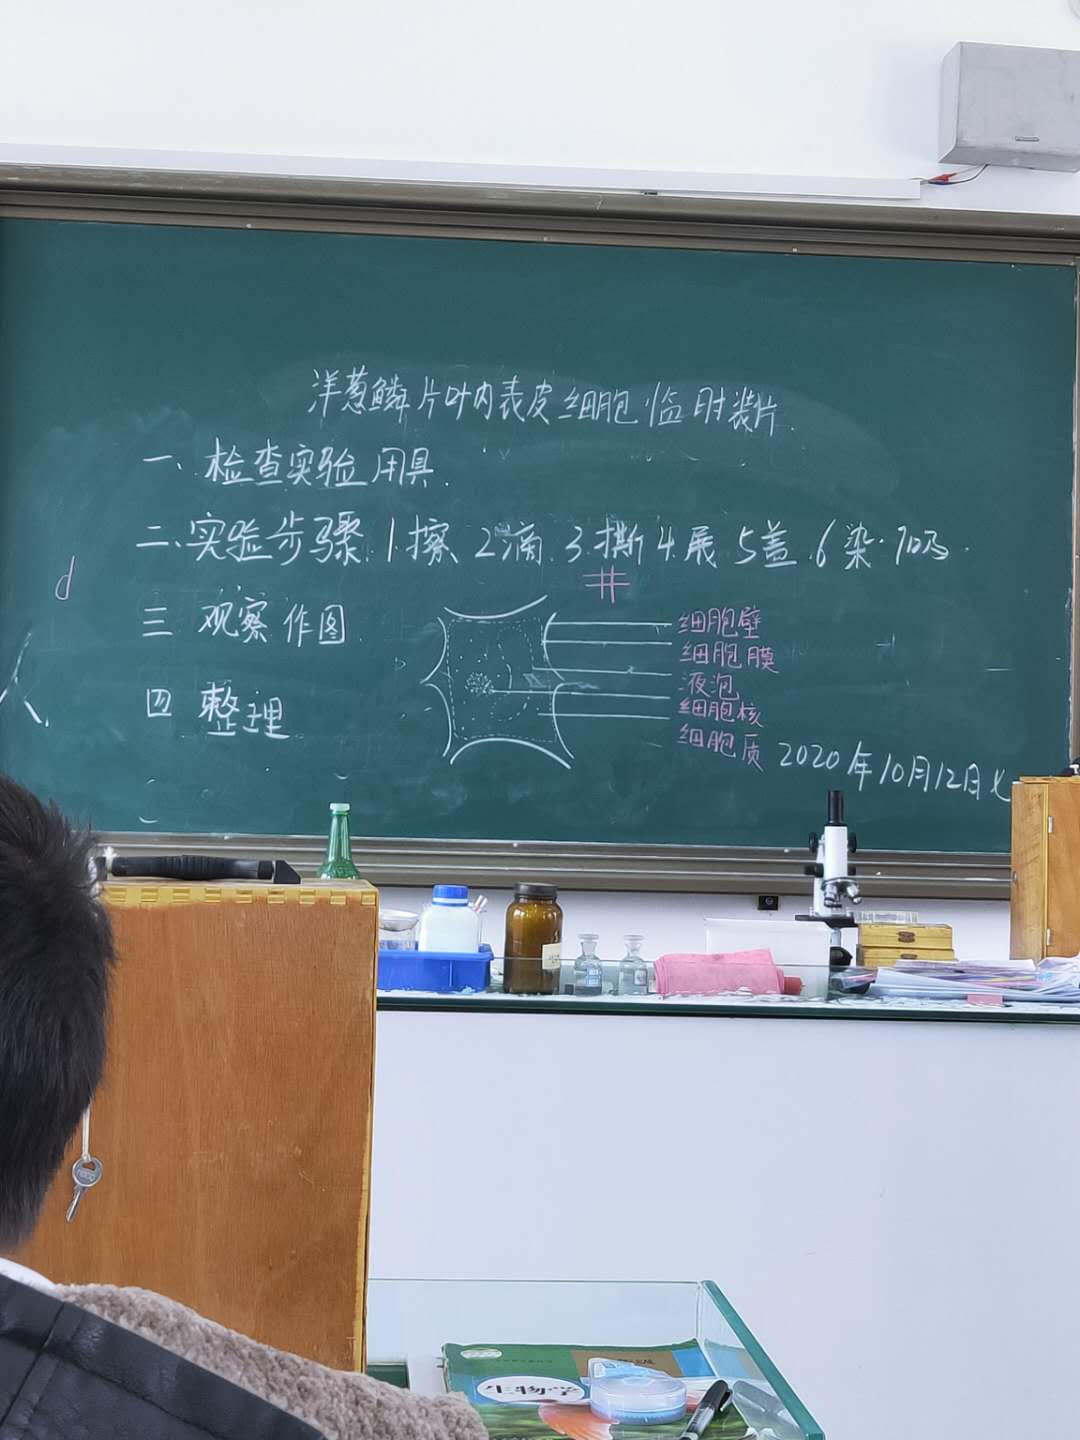 洋葱鳞片叶内表皮细胞临时装片.
一、检查实验用具.
二、实验步骤.1.擦.2滴.3.撕4.展5盖.6染.7吸.
井
d
三 观察作图
细胞壁
细胞膜
液泡
细胞核
细胞质
人.
四 整理
2020年10月12日
生物学